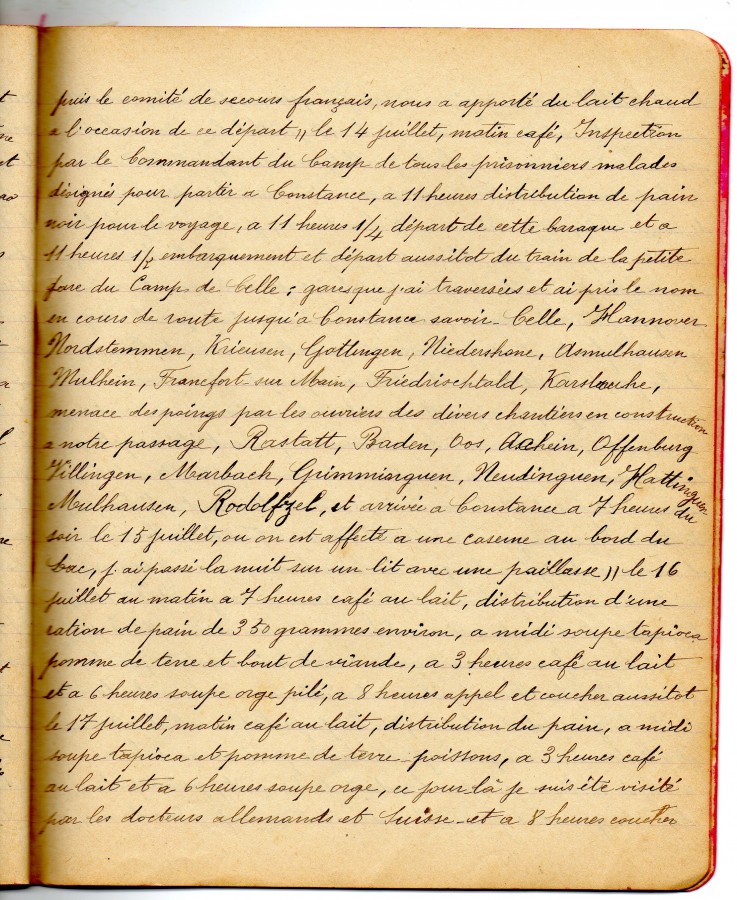 puis le comité de secours français, nous a apporté du lait chaud
a l'occasion de ce départ,, le 14 juillet, matin café, Inspection
par le Commandant du Camp de tous les prisonniers malades
désignés pour partir a Constance, a 11 heures distribution de pain
noir pour le voyage, a 11 heures 1/4 départ de cette baraque et a
11 heures 1/2 embarquement et départ aussitot du train de la petite
gare du Camp de Celle ; gares que j'ai traversées et ai pris le nom
en cours de route jusqu'a Constance savoir - Celle, Hannover
Nordstemmen, Krieusen, Gottingen, Niedershone, Asmulhausen
Mulhein, Francfort-sur Main, Friedrischtold, Karslouhe,
menace des poings par les ouvriers des divers chantiers en construction
a notre passage, Rastatt, Baden, Oos, Achein, Offenburg
Villingen, Marbach, Grimminguen, Neudinguen, Hattinguen
Mulhausen, Rodolfzel, et arrivée a Constance a 7 heures du
soir le 15 juillet, ou on est affecté a une caserne au bord du
Lac, j'ai passé la nuit sur un lit avec une paillasse,, le 16
juillet au matin a 7 heures café au lait, distribution d'une
ration de pain de 350 grammes environ, a midi soupe tapioca
pomme de terre et bout de viande, a 3 heures café au lait
et a 6 heures soupe orge pilé, a 8 heures appel et coucher aussitot
le 17 juillet, matin café au lait, distribution du pain, a midi
soupe tapioca et pomme de terre - poissons, a 3 heures café
au lait et a 6 heures soupe orge, ce jour-là je suis été visité
par les docteurs allemands et Suisse - et a 8 heures coucher